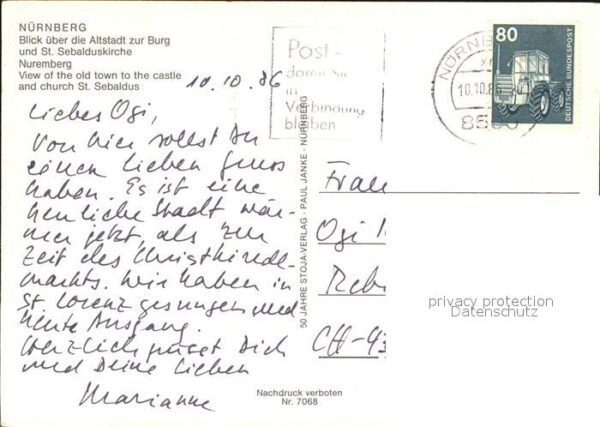 NÜRNBERG
Blick über die Altstadt zur Burg
und St. Sebalduskirche
Nuremberg
View of the old town to the castle
and church St. Sebaldus
10.10.86
Liebes Ogi,
von hier sollst Du
einen lieben Gruss
haben. Es ist eine
herrliche Stadt wär-
mer jetzt, als zur
Zeit des Christkindl-
markts. Wir haben in
St Lorenz gesungen und
heute Ausgang.
Herzlich grüsst Dich
und Deine Lieben
Marianne
50 JAHRE STOJA-VERLAG · PAUL JANKE · NÜRNBERG
Post -
damit Sie
in
Verbindung
bleiben
NÜRNB
10.10.86
8500
80
DEUTSCHE BUNDESPOST
Frau
Ogi
Reb
CH-43
privacy protection
Datenschutz
Nachdruck verboten
Nr. 7068